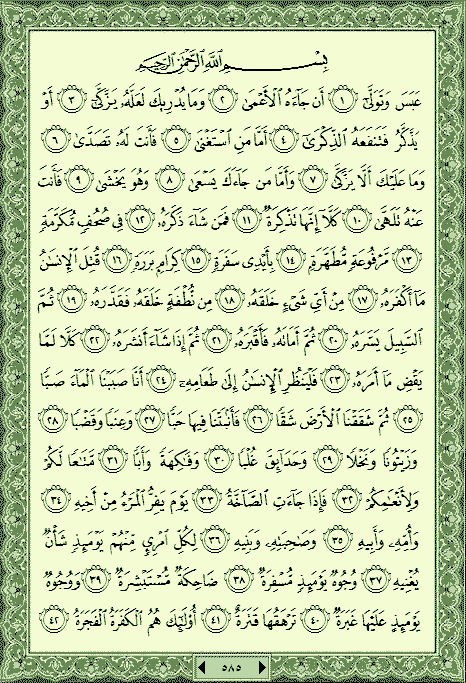 بِسْمِ ٱللَّهِ ٱلرَّحْمَٰنِ ٱلرَّحِيمِ
عَبَسَ وَتَوَلَّىٰٓ ١ أَن جَآءَهُ ٱلْأَعْمَىٰ ٢ وَمَا يُدْرِيكَ لَعَلَّهُۥ يَزَّكَّىٰٓ ٣ أَوْ
يَذَّكَّرُ فَتَنفَعَهُ ٱلذِّكْرَىٰٓ ٤ أَمَّا مَنِ ٱسْتَغْنَىٰ ٥ فَأَنتَ لَهُۥ تَصَدَّىٰ ٦
وَمَا عَلَيْكَ أَلَّا يَزَّكَّىٰ ٧ وَأَمَّا مَن جَآءَكَ يَسْعَىٰ ٨ وَهُوَ يَخْشَىٰ ٩ فَأَنتَ
عَنْهُ تَلَهَّىٰ ١٠ كَلَّآ إِنَّهَا تَذْكِرَةٌ ١١ فَمَن شَآءَ ذَكَرَهُۥ ١٢ فِى صُحُفٍ مُّكَرَّمَةٍ
١٣ مَّرْفُوعَةٍ مُّطَهَّرَةٍۭ ١٤ بِأَيْدِى سَفَرَةٍ ١٥ كِرَامٍۭ بَرَرَةٍ ١٦ قُتِلَ ٱلْإِنسَٰنُ
مَآ أَكْفَرَهُۥ ١٧ مِنْ أَىِّ شَىْءٍ خَلَقَهُۥ ١٨ مِن نُّطْفَةٍ خَلَقَهُۥ فَقَدَّرَهُۥ ١٩ ثُمَّ
ٱلسَّبِيلَ يَسَّرَهُۥ ٢٠ ثُمَّ أَمَاتَهُۥ فَأَقْبَرَهُۥ ٢١ ثُمَّ إِذَا شَآءَ أَنشَرَهُۥ ٢٢ كَلَّا لَمَّا
يَقْضِ مَآ أَمَرَهُۥ ٢٣ فَلْيَنظُرِ ٱلْإِنسَٰنُ إِلَىٰ طَعَامِهِۦٓ ٢٤ أَنَّا صَبَبْنَا ٱلْمَآءَ صَبًّا
٢٥ ثُمَّ شَقَقْنَا ٱلْأَرْضَ شَقًّا ٢٦ فَأَنۢبَتْنَا فِيهَا حَبًّا ٢٧ وَعِنَبًا وَقَضْبًا ٢٨
وَزَيْتُونًا وَنَخْلًا ٢٩ وَحَدَآئِقَ غُلْبًا ٣٠ وَفَٰكِهَةً وَأَبًّا ٣١ مَّتَٰعًا لَّكُمْ
وَلِأَنْعَٰمِكُمْ ٣٢ فَإِذَا جَآءَتِ ٱلصَّآخَّةُ ٣٣ يَوْمَ يَفِرُّ ٱلْمَرْءُ مِنْ أَخِيهِ ٣٤
وَأُمِّهِۦ وَأَبِيهِ ٣٥ وَصَٰحِبَتِهِۦ وَبَنِيهِ ٣٦ لِكُلِّ ٱمْرِئٍ مِّنْهُمْ يَوْمَئِذٍ شَأْنٌ
يُغْنِيهِ ٣٧ وُجُوهٌ يَوْمَئِذٍ مُّسْفِرَةٌ ٣٨ ضَاحِكَةٌ مُّسْتَبْشِرَةٌ ٣٩ وَوُجُوهٌ
يَوْمَئِذٍ عَلَيْهَا غَبَرَةٌ ٤٠ تَرْهَقُهَا قَتَرَةٌ ٤١ أُو۟لَٰٓئِكَ هُمُ ٱلْكَفَرَةُ ٱلْفَجَرَةُ ٤٢
٥٨٥